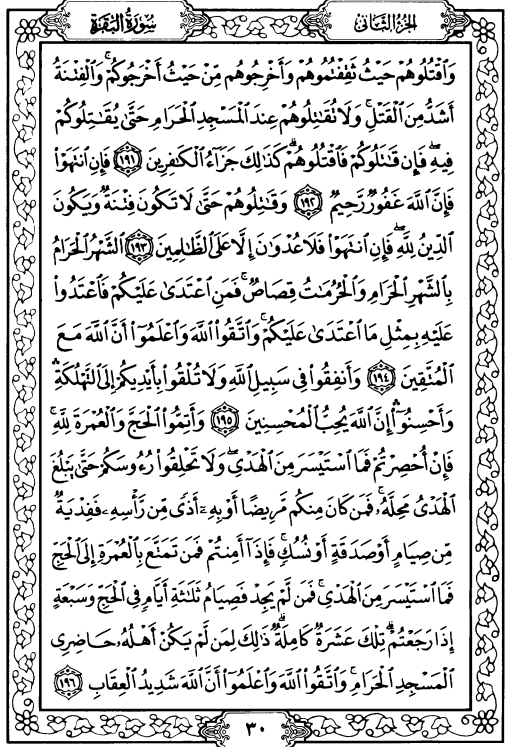 الجزء الثانى
سورة البقرة
وَٱقْتُلُوهُمْ حَيْثُ ثَقِفْتُمُوهُمْ وَأَخْرِجُوهُم مِّنْ حَيْثُ أَخْرَجُوكُمْ ۚ وَٱلْفِتْنَةُ
أَشَدُّ مِنَ ٱلْقَتْلِ ۚ وَلَا تُقَـٰتِلُوهُمْ عِندَ ٱلْمَسْجِدِ ٱلْحَرَامِ حَتَّىٰ يُقَـٰتِلُوكُمْ
فِيهِ ۖ فَإِن قَـٰتَلُوكُمْ فَٱقْتُلُوهُمْ ۗ كَذَٰلِكَ جَزَآءُ ٱلْكَـٰفِرِينَ ١٩١ فَإِنِ ٱنتَهَوْا۟
فَإِنَّ ٱللَّهَ غَفُورٌ رَّحِيمٌ ١٩٢ وَقَـٰتِلُوهُمْ حَتَّىٰ لَا تَكُونَ فِتْنَةٌ وَيَكُونَ
ٱلدِّينُ لِلَّهِ ۖ فَإِنِ ٱنتَهَوْا۟ فَلَا عُدْوَٰنَ إِلَّا عَلَى ٱلظَّـٰلِمِينَ ١٩٣ ٱلشَّهْرُ ٱلْحَرَامُ
بِٱلشَّهْرِ ٱلْحَرَامِ وَٱلْحُرُمَـٰتُ قِصَاصٌ ۚ فَمَنِ ٱعْتَدَىٰ عَلَيْكُمْ فَٱعْتَدُوا۟
عَلَيْهِ بِمِثْلِ مَا ٱعْتَدَىٰ عَلَيْكُمْ ۚ وَٱتَّقُوا۟ ٱللَّهَ وَٱعْلَمُوٓا۟ أَنَّ ٱللَّهَ مَعَ
ٱلْمُتَّقِينَ ١٩٤ وَأَنفِقُوا۟ فِى سَبِيلِ ٱللَّهِ وَلَا تُلْقُوا۟ بِأَيْدِيكُمْ إِلَى ٱلتَّهْلُكَةِ ۛ
وَأَحْسِنُوٓا۟ ۛ إِنَّ ٱللَّهَ يُحِبُّ ٱلْمُحْسِنِينَ ١٩٥ وَأَتِمُّوا۟ ٱلْحَجَّ وَٱلْعُمْرَةَ لِلَّهِ ۚ
فَإِنْ أُحْصِرْتُمْ فَمَا ٱسْتَيْسَرَ مِنَ ٱلْهَدْىِ ۖ وَلَا تَحْلِقُوا۟ رُءُوسَكُمْ حَتَّىٰ يَبْلُغَ
ٱلْهَدْىُ مَحِلَّهُۥ ۚ فَمَن كَانَ مِنكُم مَّرِيضًا أَوْ بِهِۦٓ أَذًى مِّن رَّأْسِهِۦ فَفِدْيَةٌ
مِّن صِيَامٍ أَوْ صَدَقَةٍ أَوْ نُسُكٍ ۚ فَإِذَآ أَمِنتُمْ فَمَن تَمَتَّعَ بِٱلْعُمْرَةِ إِلَى ٱلْحَجِّ
فَمَا ٱسْتَيْسَرَ مِنَ ٱلْهَدْىِ ۚ فَمَن لَّمْ يَجِدْ فَصِيَامُ ثَلَـٰثَةِ أَيَّامٍ فِى ٱلْحَجِّ وَسَبْعَةٍ
إِذَا رَجَعْتُمْ ۗ تِلْكَ عَشَرَةٌ كَامِلَةٌ ۗ ذَٰلِكَ لِمَن لَّمْ يَكُنْ أَهْلُهُۥ حَاضِرِى
ٱلْمَسْجِدِ ٱلْحَرَامِ ۚ وَٱتَّقُوا۟ ٱللَّهَ وَٱعْلَمُوٓا۟ أَنَّ ٱللَّهَ شَدِيدُ ٱلْعِقَابِ ١٩٦
٣٠